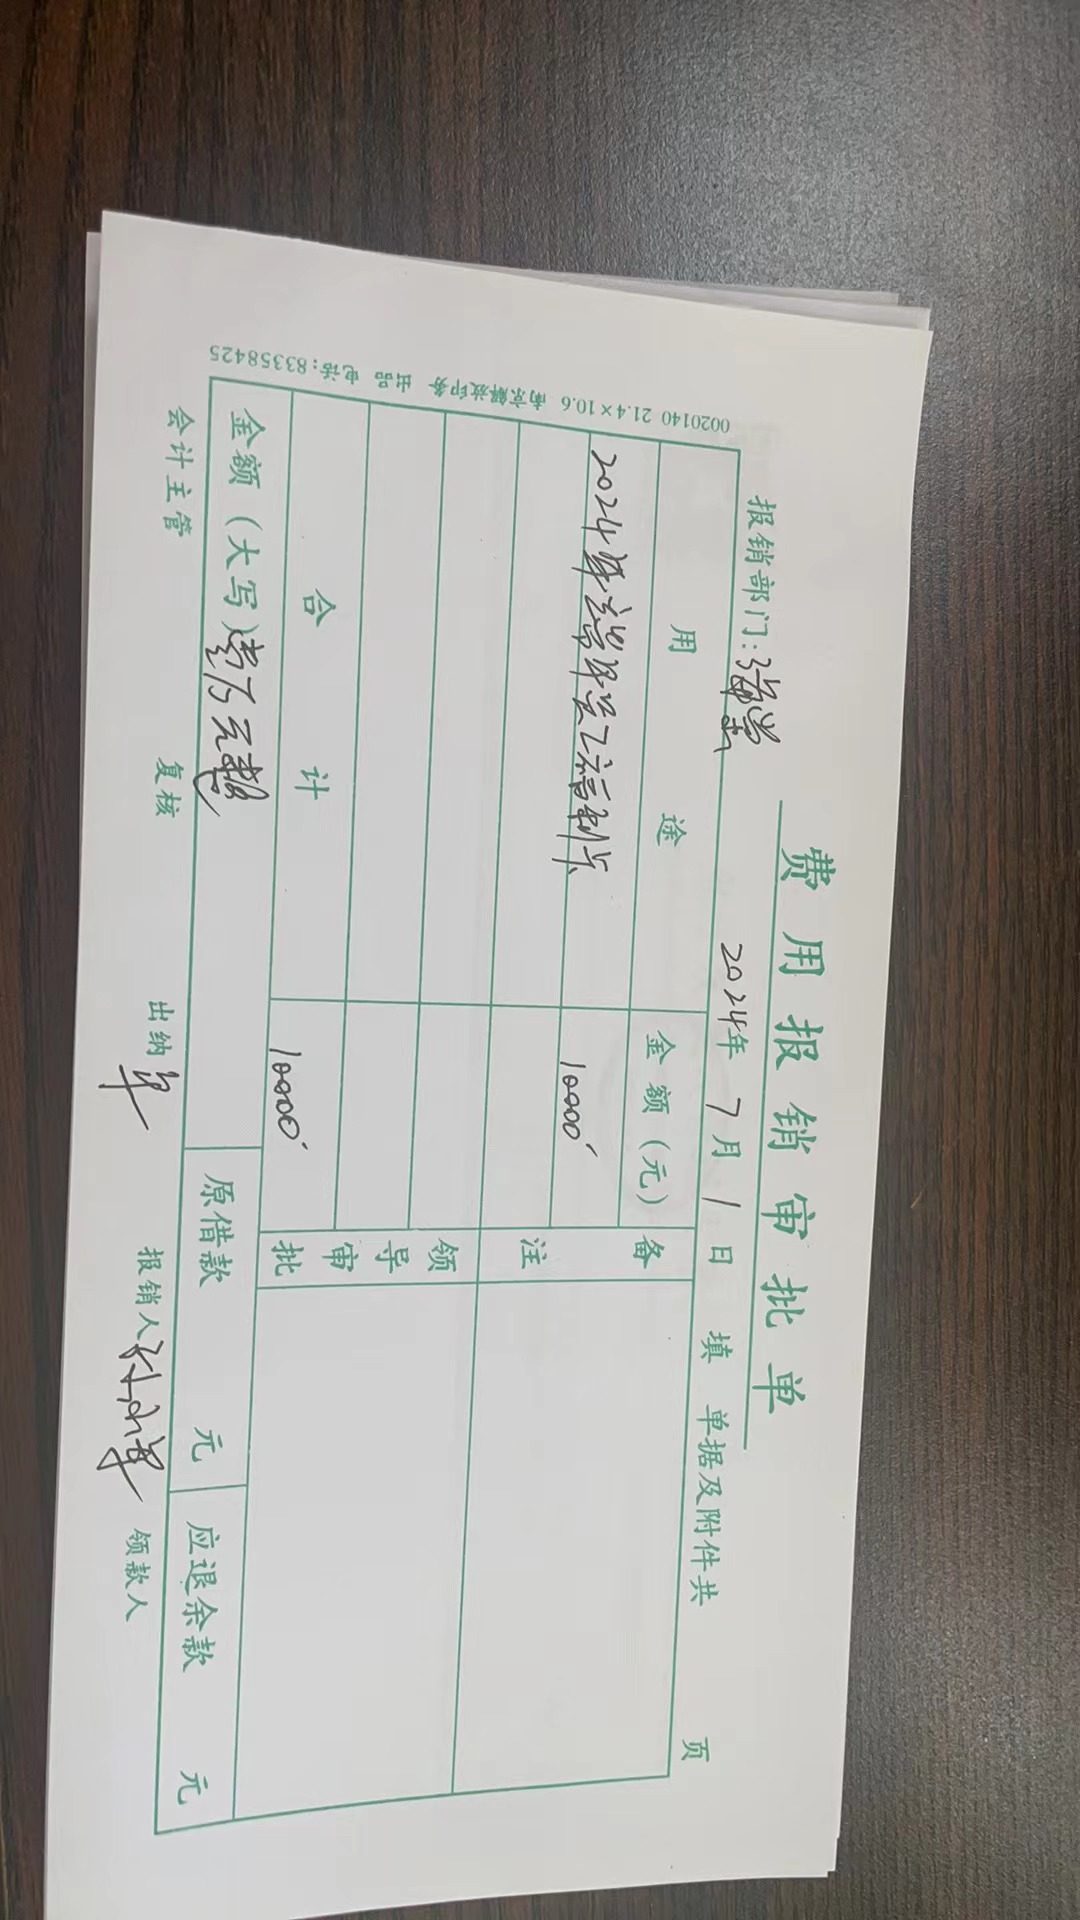 费用报销审批单
报销部门: 2024年7月1日填 单据及附件共 页
用途 金额(元) 备注
2024年 10000
合计 10000 领导审批
金额(大写)壹万元整 原借款 元 应退余款 元
会计主管 复核 出纳 报销人 领款人
0020140 21.4×10.6 南京解放印务 出品 电话:83358425